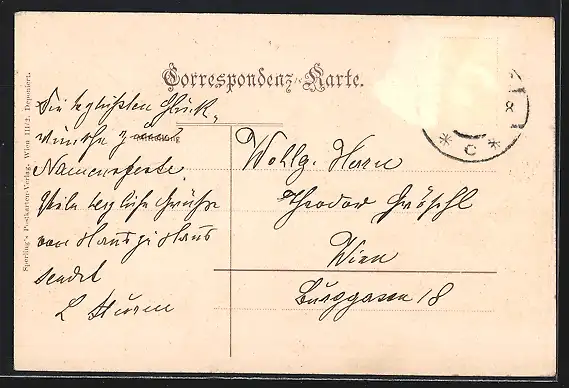 Correspondenz-Karte.
Die herzlichsten Glück-
wünsche z
Namensfeste.
Viele herzliche Grüße
von Haus zu Haus
sendet
L Sturm
Wohlg. Herrn
Theodor Gröschl
Wien
Burggasse 18
Sperling's Postkarten-Verlag, Wien III/2. Deponiert.
* C *